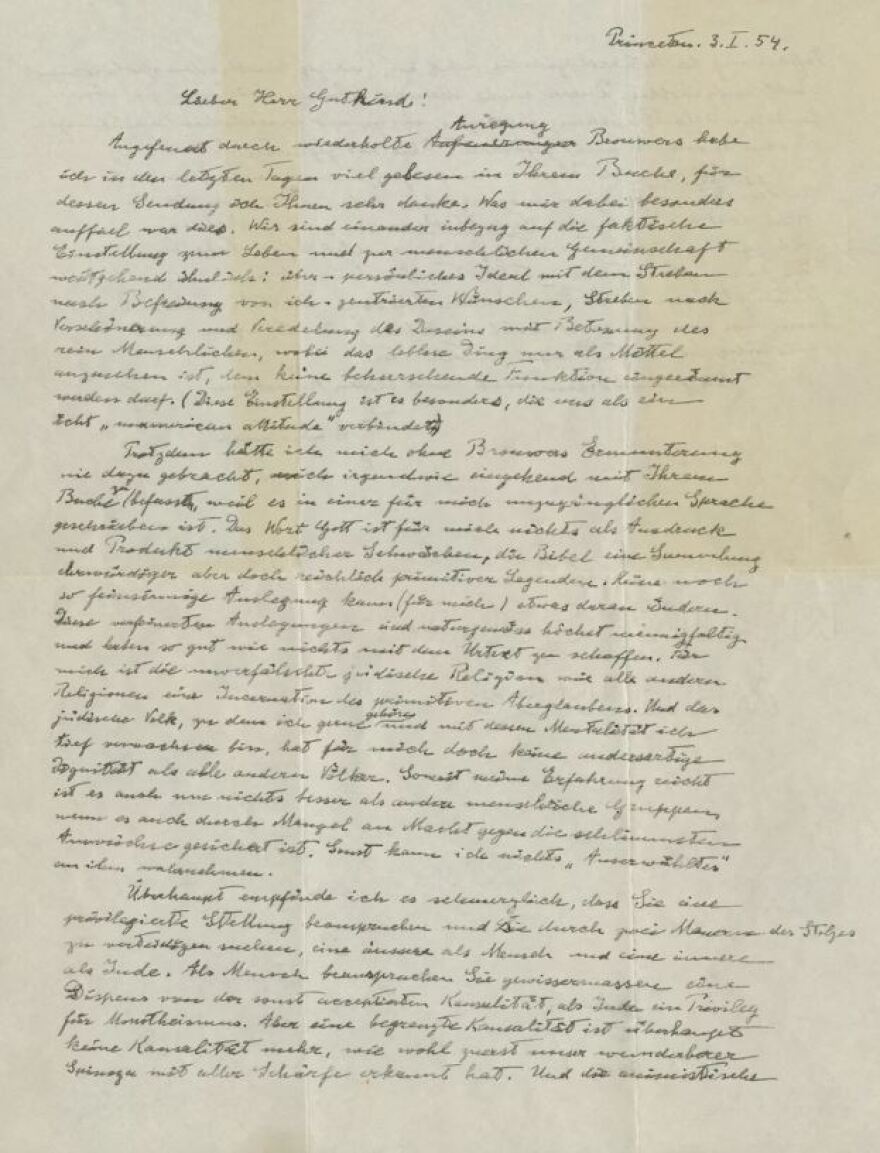 Princeton. 3. I. 54.
Lieber Herr Gutkind!
Anregung
Angefeuert durch wiederholte Brouwers habe
ich in den letzten Tagen viel gelesen in Ihrem Buche, für
dessen Sendung ich Ihnen sehr danke. Was mir dabei besonders
auffiel war dies. Wir sind einander inbezug auf die faktische
Einstellung zum Leben und zur menschlichen Gemeinschaft
weitgehend ähnlich: über-persönliches Ideal mit dem Streben
nach Befreiung von ich-zentrierten Wünschen, Streben nach
Verschönerung und Veredelung des Daseins mit Betonung des
rein Menschlichen, wobei das leblose Ding nur als Mittel
anzusehen ist, dem keine beherrschende Funktion eingeräumt
werden darf. (Diese Einstellung ist es besonders, die uns als ein
echt „unamerican attitude" verbindet)
Trotzdem hätte ich mich ohne Brouwers Ermunterung
nie dazu gebracht, mich irgendwie eingehend mit Ihrem
Buche befassen, weil es in einer für mich unzugänglichen Sprache
geschrieben ist. Das Wort Gott ist für mich nichts als Ausdruck
und Produkt menschlicher Schwächen, die Bibel eine Sammlung
ehrwürdiger aber doch reichlich primitiver Legenden. Keine noch
so feinsinnige Auslegung kann (für mich) etwas daran ändern.
Diese verfeinerten Auslegungen sind naturgemäss höchst mannigfaltig
und haben so gut wie nichts mit dem Urtext zu schaffen. Für
mich ist die unverfälschte jüdische Religion wie alle anderen
Religionen eine Incarnation des primitiven Aberglaubens. Und das
jüdische Volk, zu dem ich gerne gehöre und mit dessen Mentalität ich
tief verwachsen bin, hat für mich doch keine andersartige
Dignität als alle anderen Völker. Soweit meine Erfahrung reicht
ist es auch um nichts besser als andere menschliche Gruppen
wenn es auch durch Mangel an Macht gegen die schlimmsten
Auswüchse gesichert ist. Sonst kann ich nichts „Auserwähltes"
an ihm wahrnehmen.
Überhaupt empfinde ich es schmerzlich, dass Sie eine
privilegierte Stellung beanspruchen und sie durch zwei Mauern des Stolzes
zu verteidigen suchen, eine äussere als Mensch und eine innere
als Jude. Als Mensch beanspruchen Sie gewissermassen einen
Dispens von der sonst acceptierten Kausalität, als Jude ein Privileg
für Monotheismus. Aber eine begrenzte Kausalität ist überhaupt
keine Kausalität mehr, wie wohl zuerst unser wunderbarer
Spinoza mit aller Schärfe erkannt hat. Und die animistische